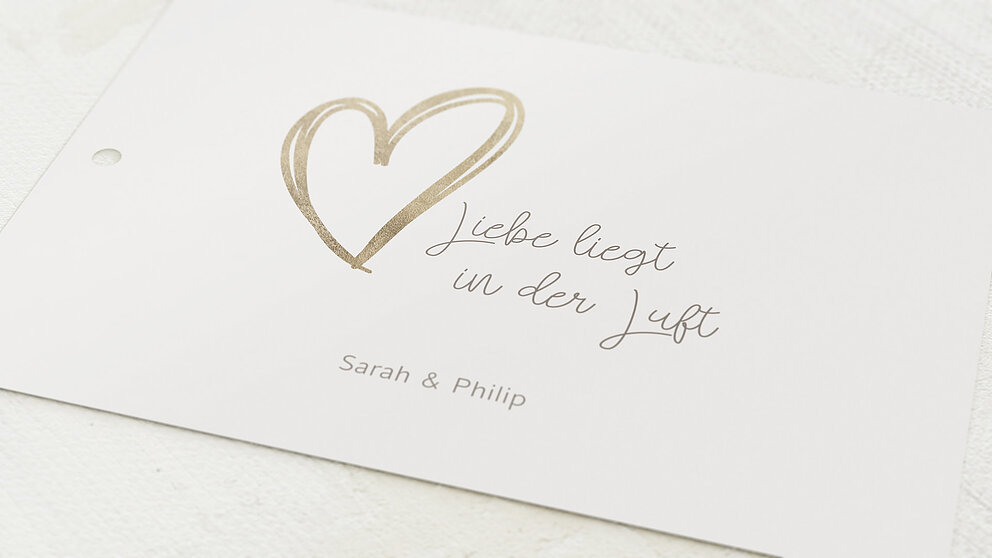 Liebe liegt
in der Luft
Sarah & Philip